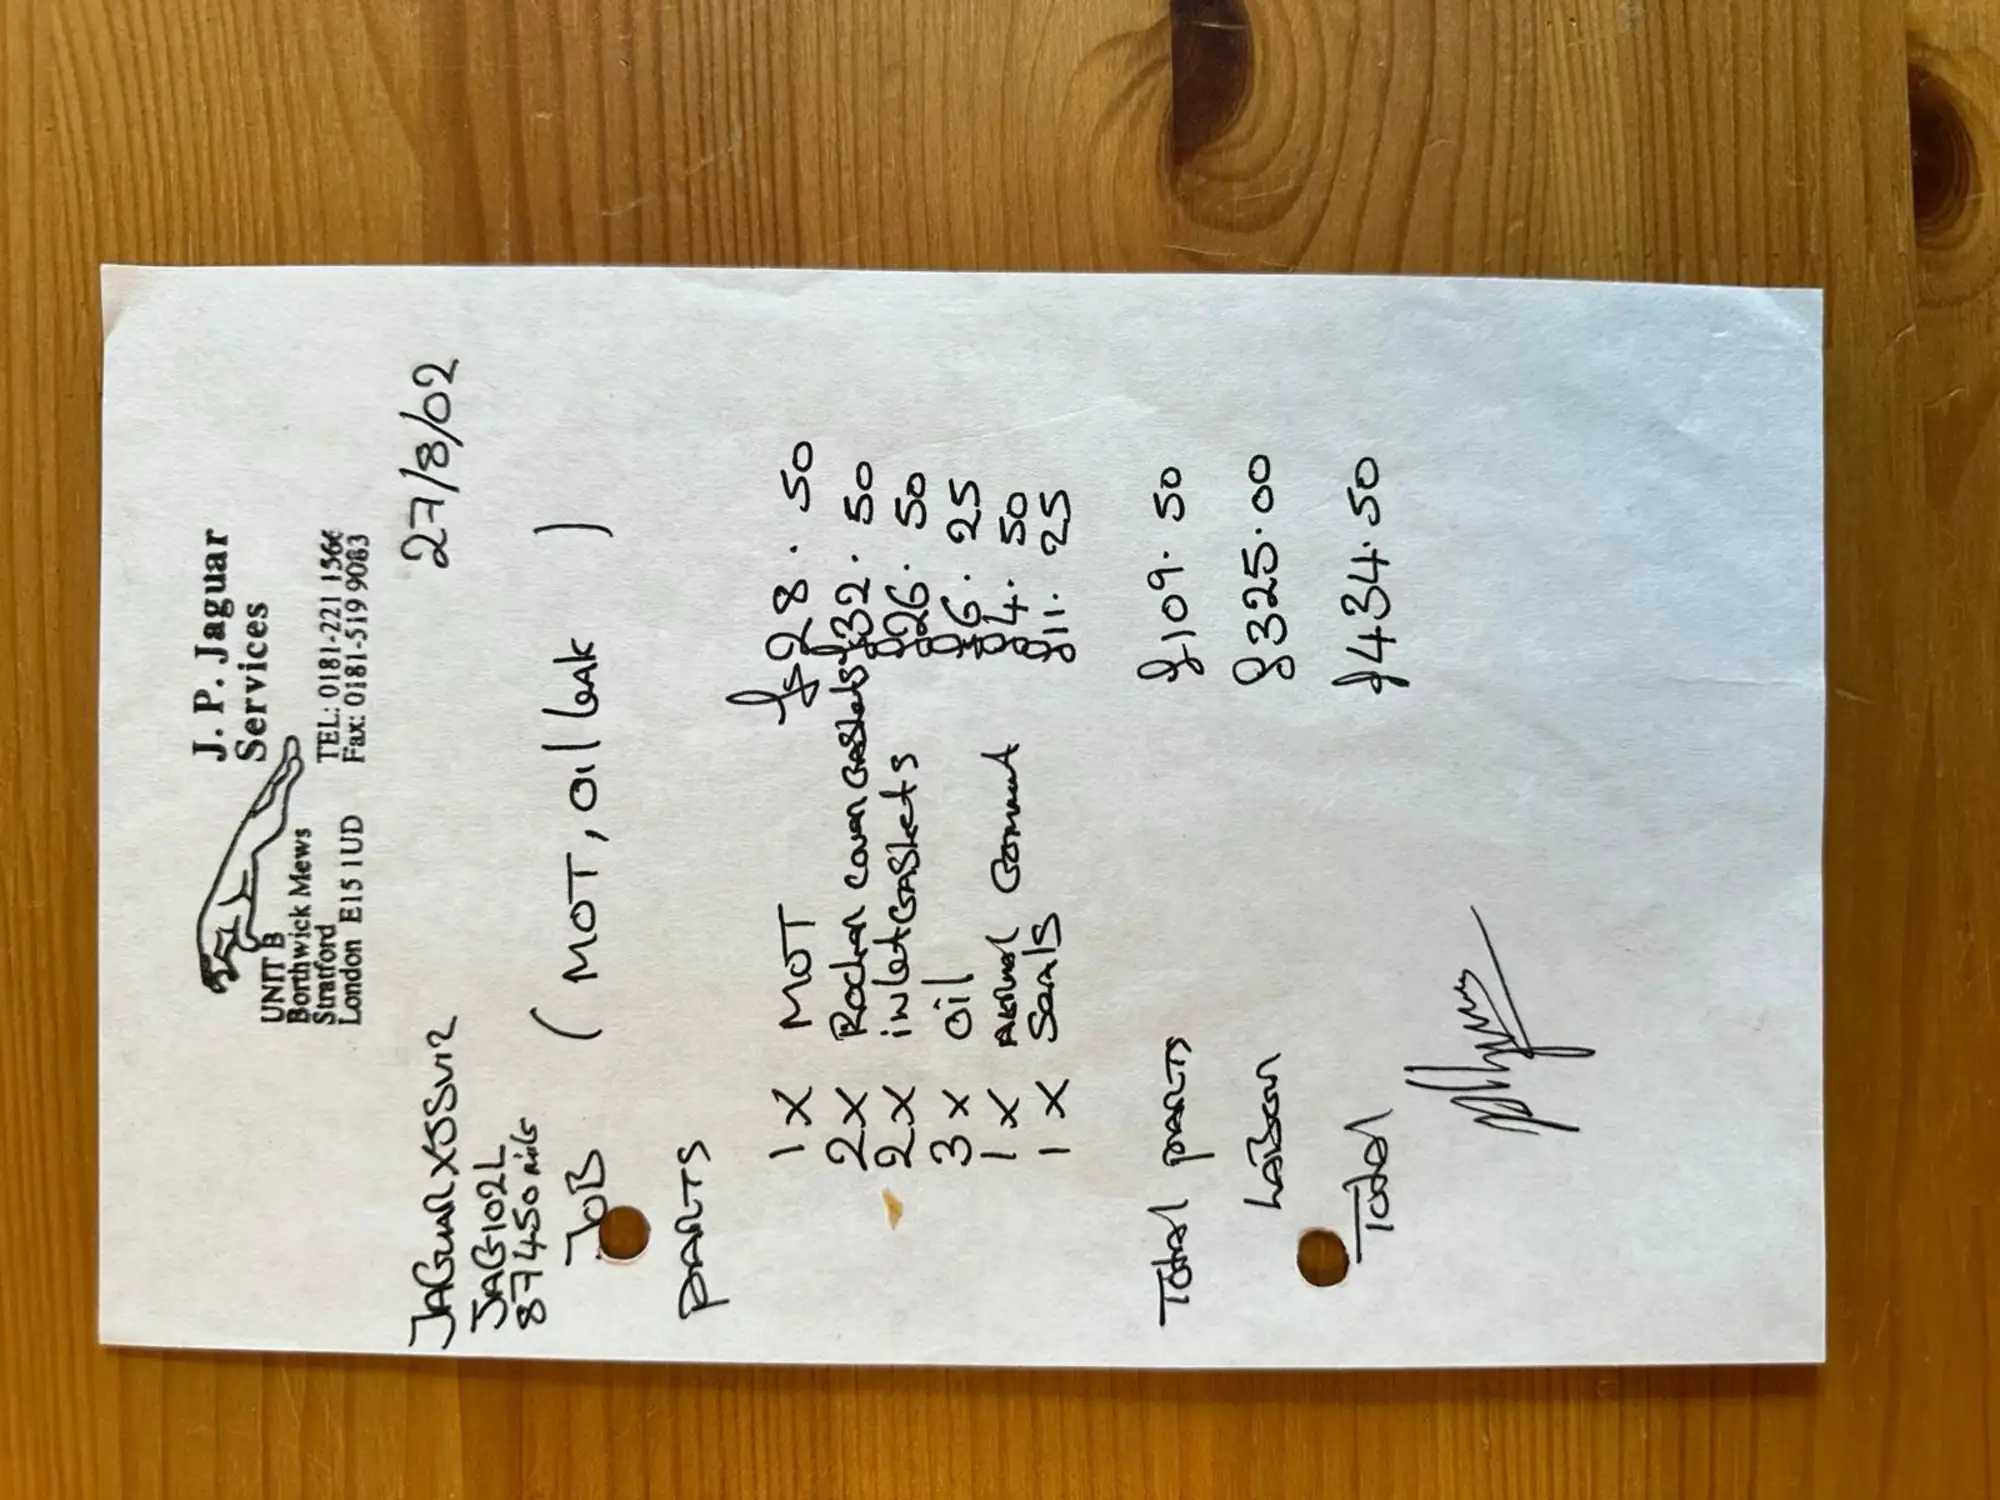 J. P. Jaguar
Services
UNIT B
Borthwick Mews
Stratford
London E15 1UD
TEL: 0181-221 1566
Fax: 0181-519 9083
JAGUAR XJSV12
27/8/02
JAG 102L
87450 miles
JOB (MOT, oil leak)
PARTS
1 x MOT £28.50
2 x Rocker cover Gaskets £32.50
2 x inlet Gaskets £26.50
3 x oil £6.25
1 x £4.50
1 x Seals £11.25
Total parts £109.50
Labour £325.00
Total £434.50